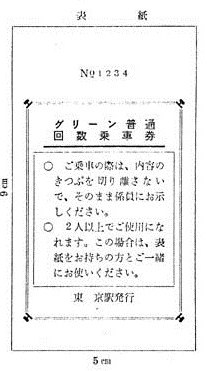 表　紙
№1234
グリーン普通
回数乗車券
○　ご乗車の際は、内容の
きっぷを切り離さない
で、そのまま係員にお示
しください。
○　2人以上でご使用にな
れます。この場合は、表
紙をお持ちの方とご一緒
にお使いください。
東　京駅発行
9cm
5cm